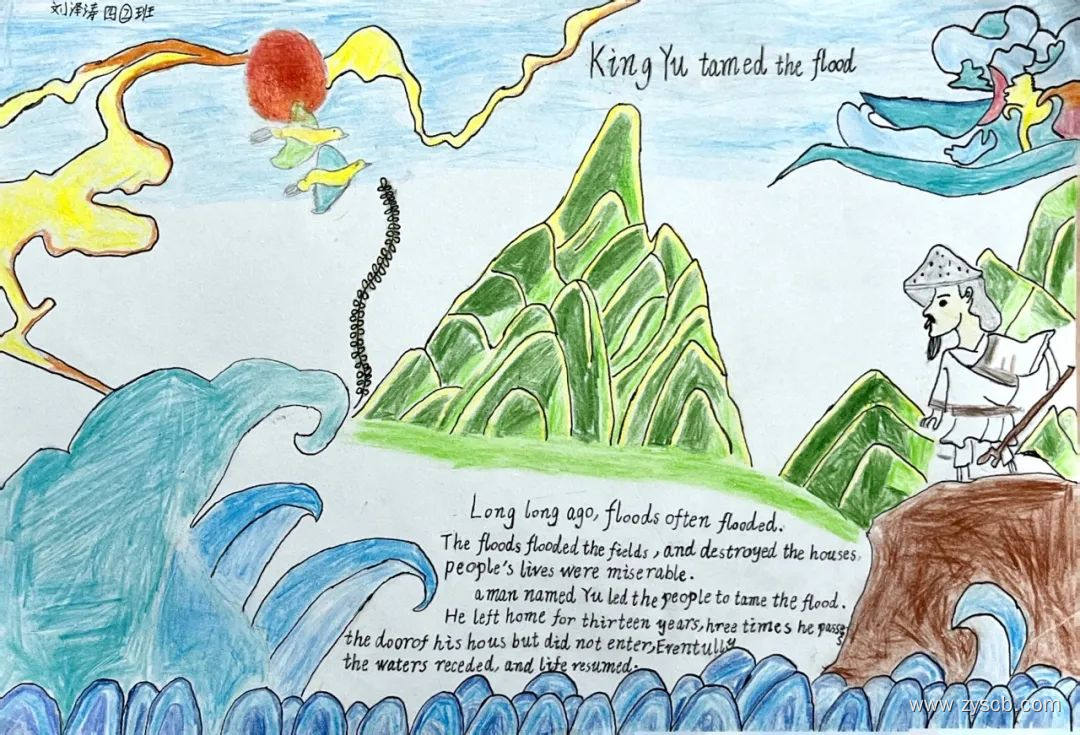 刘泽涛 四②班
King Yu tamed the flood
Long long ago, floods often flooded.
The floods flooded the fields, and destroyed the houses,
people's lives were miserable.
a man named Yu led the people to tame the flood.
He left home for thirteen years, hree times he passe
the doorof his hous but did not enter, Eventully
the waters receded, and life resumed.
www.zyscb.com